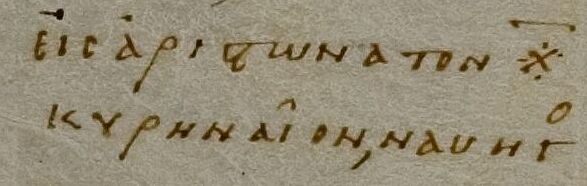 εἰς ἀριϛωνα τον ※
κυρηναῖον, ναυηγο